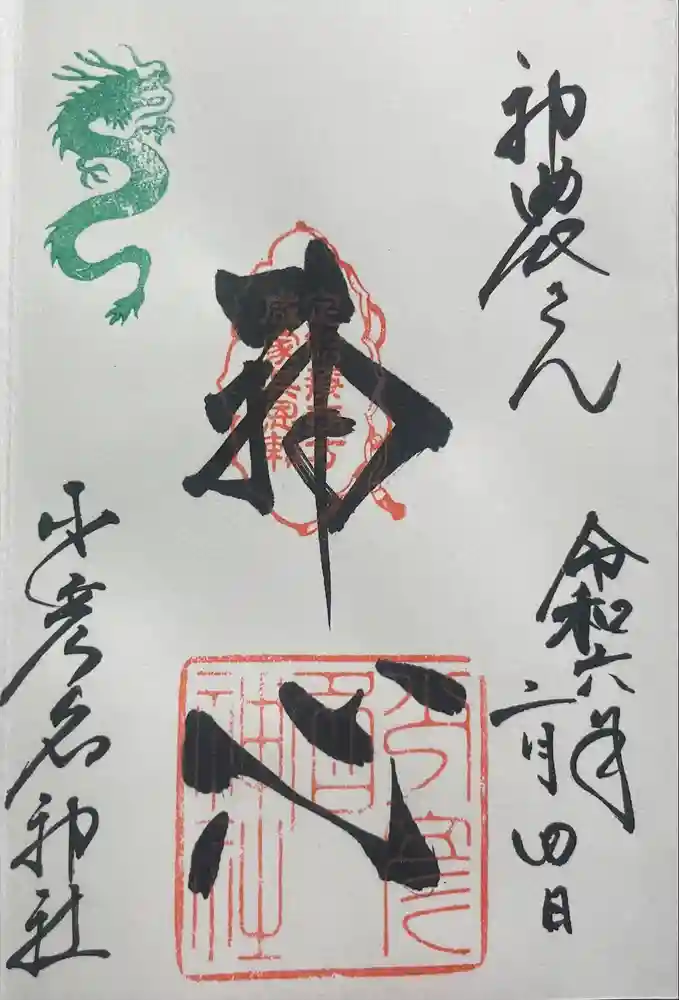 神農さん
令和六年
二月四日
拝
心
少彦名神社
少彦名神社